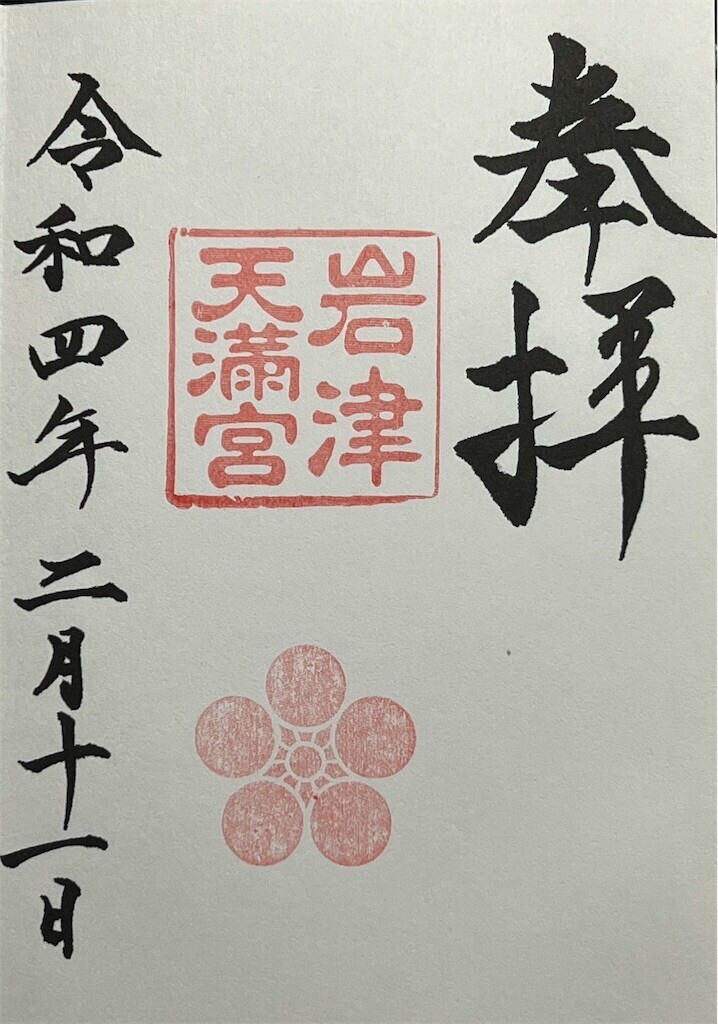 奉拝
岩津
天満宮
令和四年 二月十一日